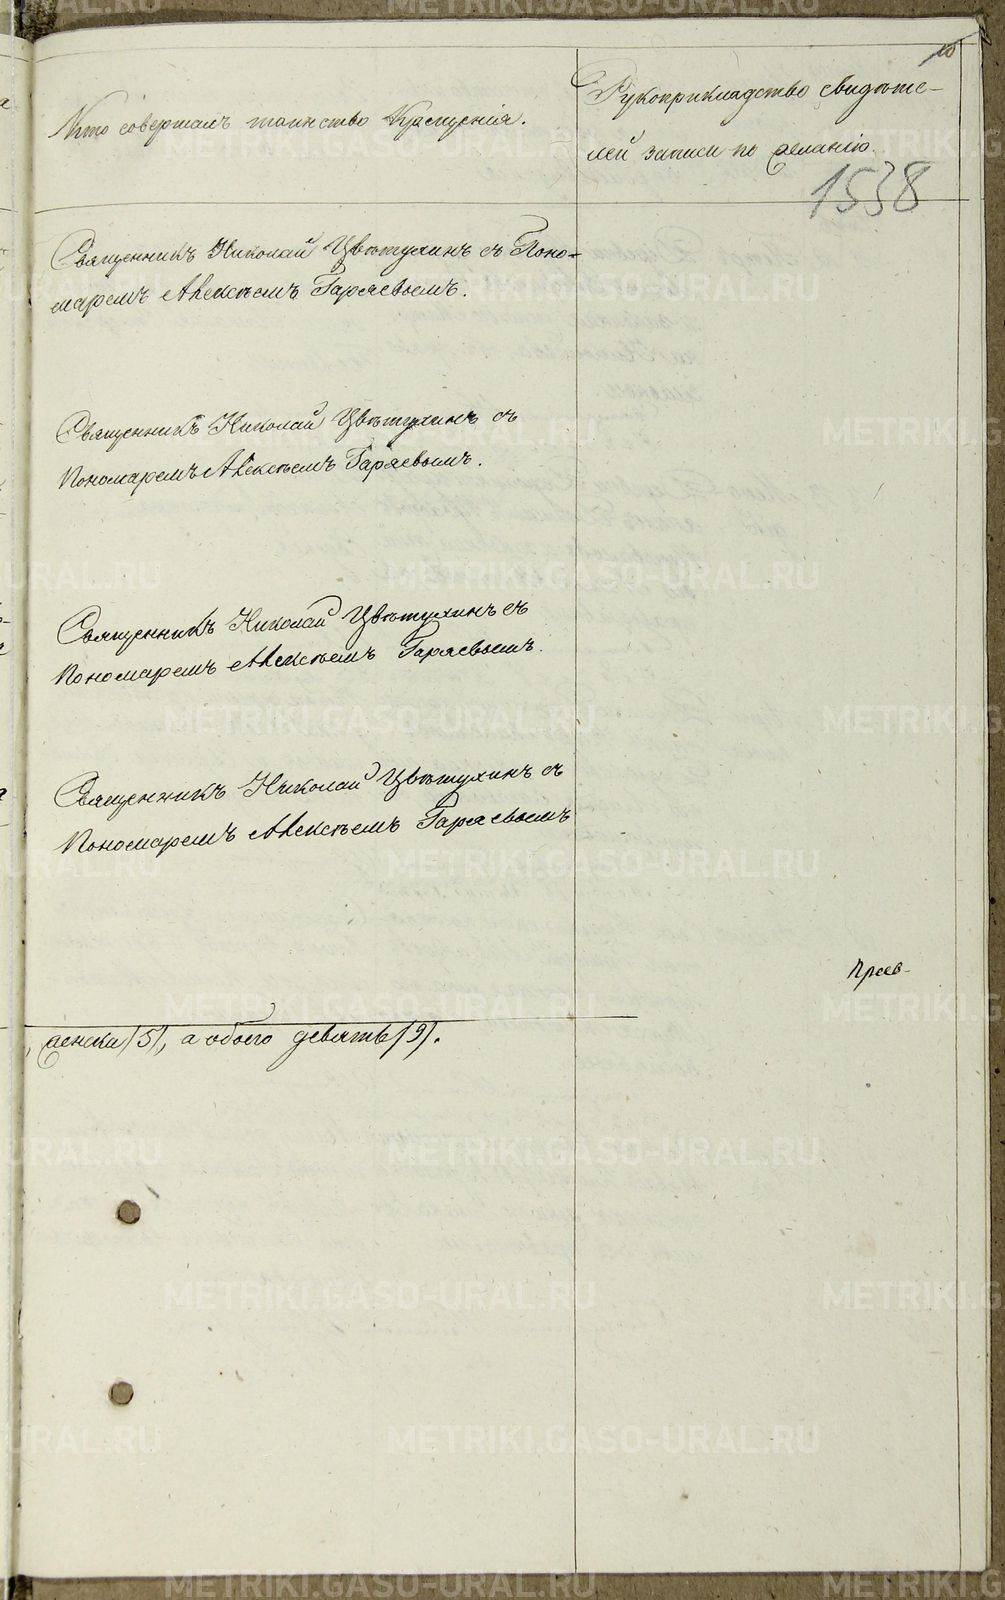 10
Кто совершалъ таинство Крещенія.
Рукоприкладство свидѣте-
лей записи по желанію.
1538
Священникъ Николай Цвѣтухинъ съ Поно-
маремъ Алексѣемъ Гаряевымъ.
Священникъ Николай Цвѣтухинъ съ
Пономаремъ Алексѣемъ Гаряевымъ.
Священникъ Николай Цвѣтухинъ съ
Пономаремъ Алексѣемъ Гаряевымъ.
Священникъ Николай Цвѣтухинъ съ
Пономаремъ Алексѣемъ Гаряевымъ
женска (5), а обоего девять (9).
METRIKI.GASO-URAL.RU